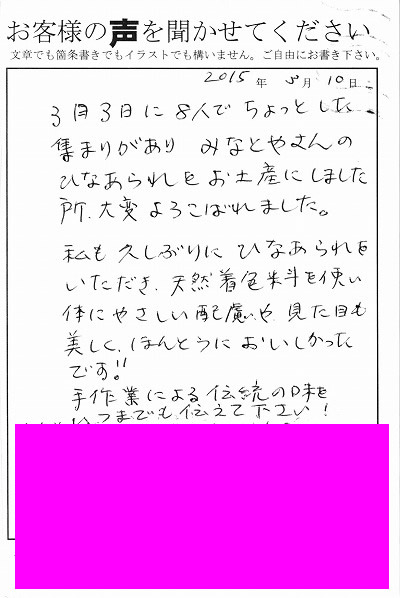 お客様の声を聞かせてください
文章でも箇条書きでもイラストでも構いません。ご自由にお書き下さい。
2015年 3月 10日
3月3日に 8人で ちょっとした
集まりがあり みなとやさんの
ひなあられを お土産にしました
所、大変 よろこばれました。
私も 久しぶりに ひなあられを
いただき、天然着色料を使い
体にやさしい 配慮や、見た目も
美しく、ほんとうに おいしかった
です!!
手作業による 伝統の味を
いつまでも 伝えて下さい!